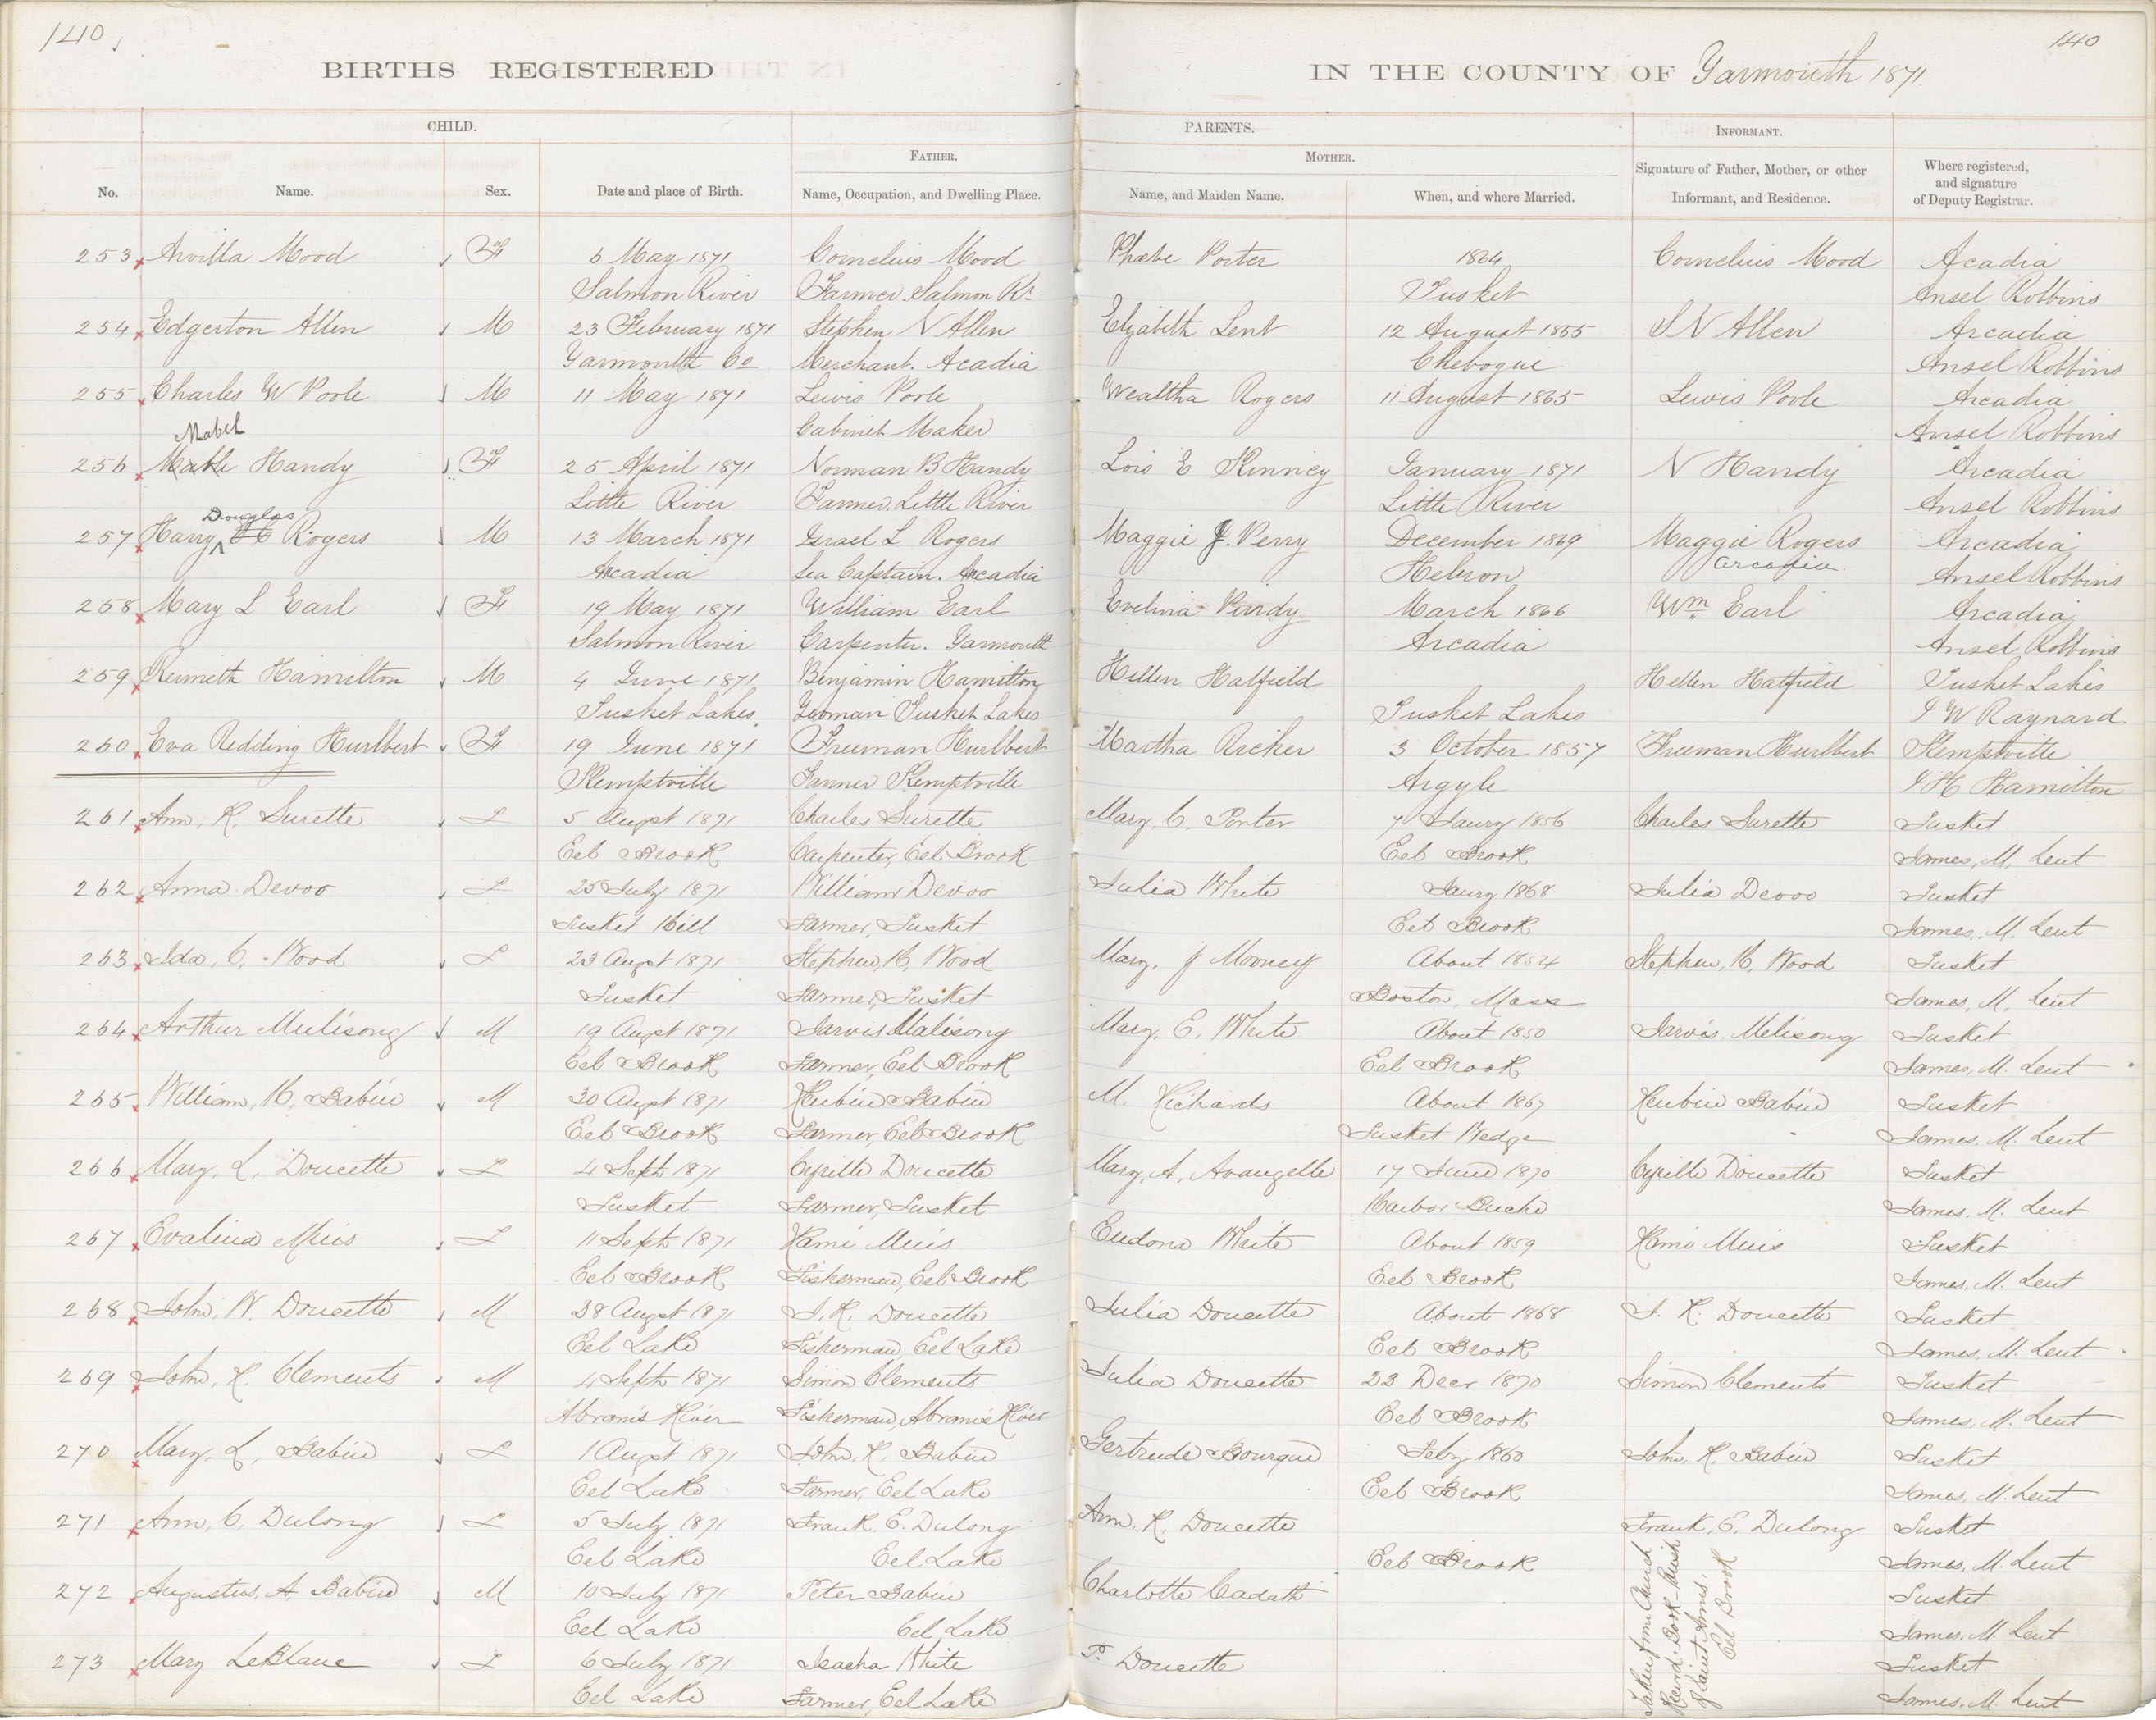 140
140
BIRTHS REGISTERED
IN THE COUNTY OF Yarmouth 1871
CHILD.
PARENTS.
INFORMANT.
FATHER.
MOTHER.
No.
Name.
Sex.
Date and place of Birth.
Name, Occupation, and Dwelling Place.
Name, and Maiden Name.
When, and where Married.
Signature of Father, Mother, or other
Informant, and Residence.
Where registered,
and signature
of Deputy Registrar.
253 Arvilla Mood F 6 May 1871 Cornelius Mood Phœbe Porter 1864 Cornelius Mood Acadia
Salmon River Farmer. Salmon Rr Tusket Ansel Robbins
254 Edgerton Allen M 23 February 1871 Stephen N Allen Elizabeth Lent 12 August 1855 S N Allen Arcadia
Yarmouth Co Merchant. Acadia Chebogue Ansel Robbins
255 Charles W Poole M 11 May 1871 Lewis Poole Wealtha Rogers 11 August 1865 Lewis Poole Arcadia
Cabinet Maker Ansel Robbins
Mabel
256 Mable Handy F 25 April 1871 Norman B Handy Lois E Kinney January 1871 N Handy Arcadia
Little River Farmer. Little River Little River Ansel Robbins
Douglas
257 Harry Rogers M 13 March 1871 Israel L Rogers Maggie J. Perry December 1869 Maggie Rogers Arcadia
Arcadia Sea Captain. Arcadia Hebron Arcadia. Ansel Robbins
258 Mary L Earl F 19 May 1871 William Earl Evelina Purdy March 1866 Wm Earl Arcadia
Salmon River Carpenter. Yarmouth Arcadia Ansel Robbins
259 Kenneth Hamilton M 4 June 1871 Benjamin Hamilton Hellen Hatfield Hellen Hatfield Tusket Lakes
Tusket Lakes. Yeoman Tusket Lakes Tusket Lakes J W Raynard.
260 Eva Redding Hurlbert F 19 June 1871 Freeman Hurlbert Martha Ricker 3 October 1857 Freeman Hurlbert Kemptville
Kemptville Farmer Kemptville Argyle J H Hamilton
261 Ann, R. Surette F 5 Augst 1871 Charles Surette Mary, C. Porter 7 Janry 1856 Charles Surette Tusket
Eel Brook Carpenter, Eel Brook Eel Brook James, M, Lent
262 Anna Devoo F 25 July 1871 William Devoo Julia White Janry 1868 Julia Devoo Tusket
Tusket Hill Farmer, Tusket Eel Brook James, M. Lent
263 Ida, C, Wood F 23 Augst 1871 Stephen, H, Wood Mary, J Mooney About 1854 Stephen, H, Wood Tusket
Tusket Farmer, Tusket Boston, Mass James, M, Lent
264 Arthur Mulisong M 19 Augst 1871 Jarvis Malisong Mary, E. White About 1850 Jarvis Melisong Tusket
Eel Brook Farmer, Eel Brook Eel Brook James, M. Lent
265 William, H, Babin M 30 Augst 1871 Reubin Babin M. Richards About 1867 Reubin Babin Tusket
Eel Brook Farmer, Eel Brook Tusket Wedge James, M. Lent
266 Mary, L, Doucette F 4 Septr 1871 Cyrille Doucette Mary, A, Avangelle 17 June 1870 Cyrille Doucette Tusket
Tusket Farmer, Tusket Harbor Buche James. M. Lent
267 Evalina Muis F 11 Septr 1871 Remi Muis Eudona White About 1859 Remi Muis Tusket
Eel Brook Fisherman, Eel Brook Eel Brook James, M. Lent
268 John, W. Doucette M 28 Augst 1871 J. R. Doucette Julia Doucette About 1868 J. R. Doucette Tusket
Eel Lake Fisherman, Eel Lake Eel Brook James, M. Lent
269 John, R. Clements M 4 Septr 1871 Simon Clements Julia Doucette 23 Decr 1870 Simon Clements Tusket
Abram's River Fisherman, Abram's River Eel Brook James, M. Lent
270 Mary, L, Babin F 1 Augst 1871 John, R, Babin Gertrude Bourque Feby 1860 John, R, Babin Tusket
Eel Lake Farmer, Eel Lake Eel Brook James, M. Lent
271 Ann, C, Dulong F 5 July 1871 Frank, E. Dulong Ann. R. Doucette Frank, E, Dulong Tusket
Eel Lake Eel Lake Eel Brook James, M. Lent
272 Augustus, A, Babin M 10 July 1871 Peter Babin Charlotte Cadath Tusket
Eel Lake Eel Lake James, M. Lent
273 Mary LeBlanc F 6 July 1871 Isacha White P. Doucette Tusket
Eel Lake Farmer, Eel Lake James, M. Lent
Taken from Church
Record-Book-Parish
of Saint Anns,
Eel Brook